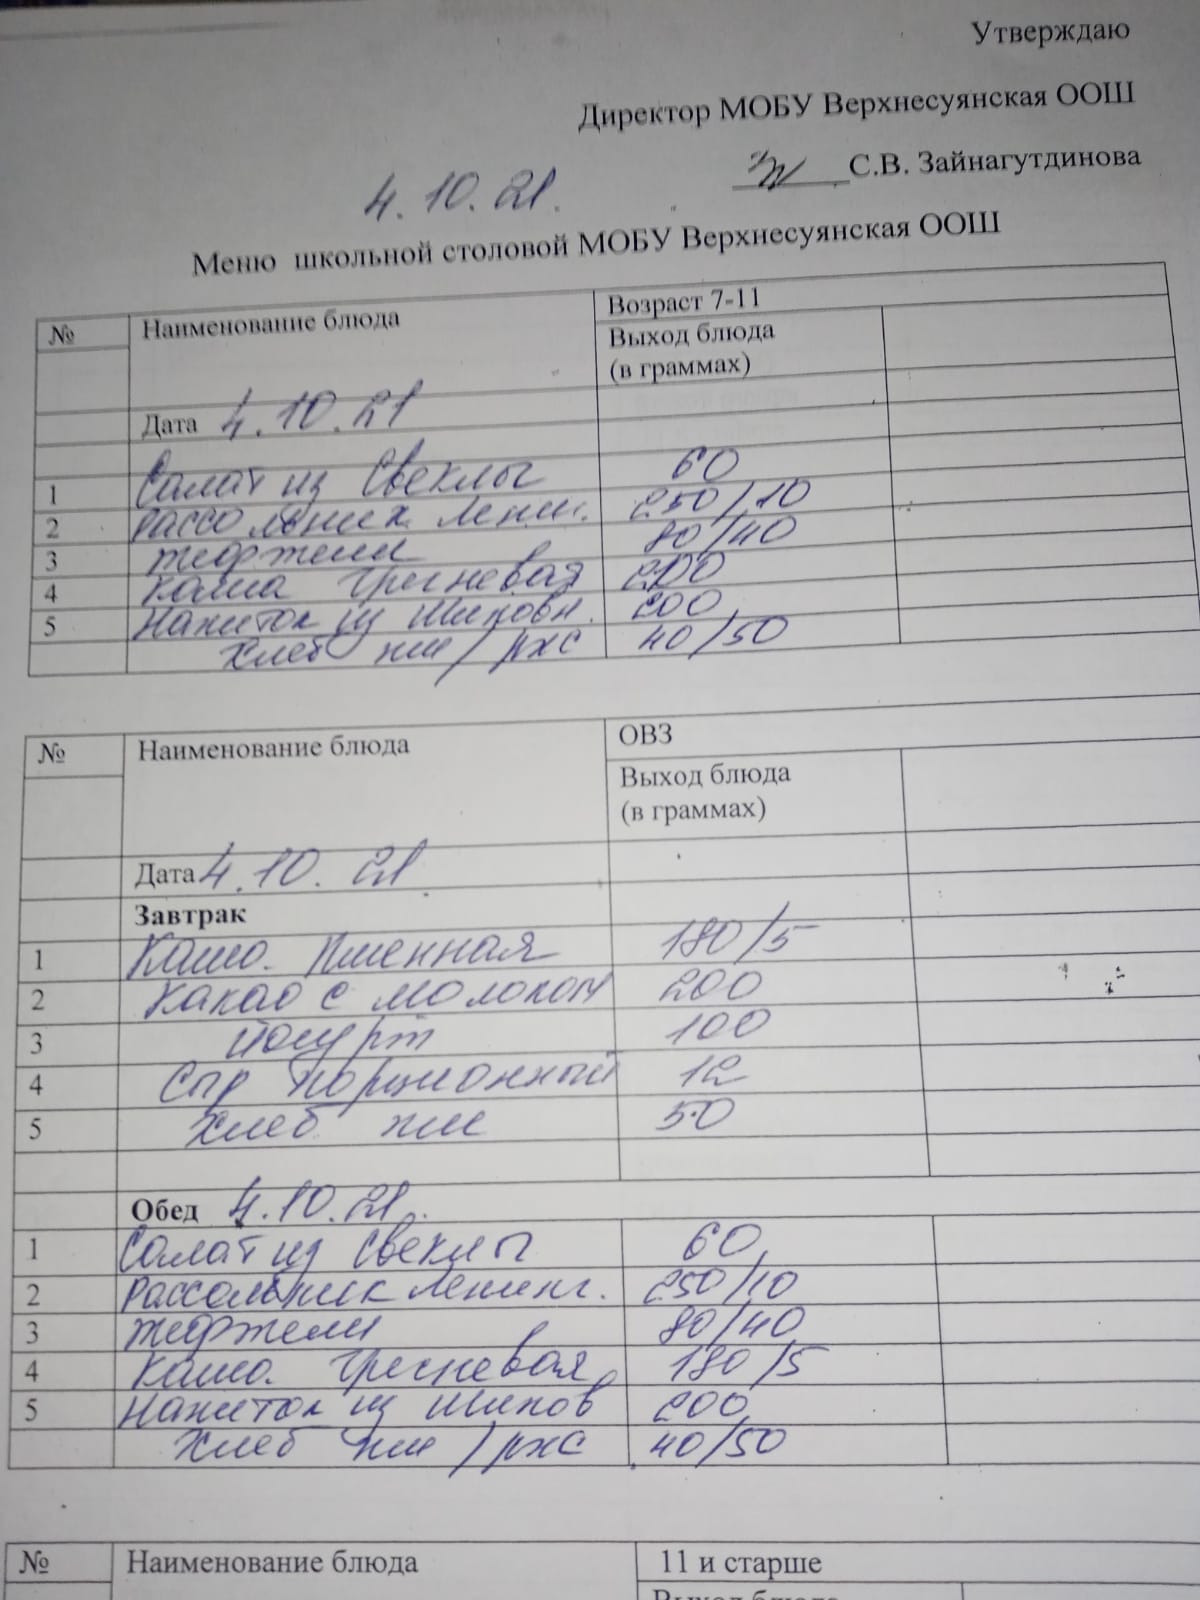 Утверждаю
Директор МОБУ Верхнесуянская ООШ
С.В. Зайнагутдинова
4.10.21.
Меню школьной столовой МОБУ Верхнесуянская ООШ
№ Наименование блюда Возраст 7-11
Выход блюда
(в граммах)
Дата 4.10.21
1 Салат из свеклы 60
2 Рассольник Ленин. 250/10
3 тефтели 80/40
4 Каша гречневая 200
5 Напиток из Шиповн. 200
Хлеб пше/ржс 40/50
№ Наименование блюда ОВЗ
Выход блюда
(в граммах)
Дата 4.10.21
Завтрак
1 Каша Пшенная 180/5
2 Какао с молоком 200
3 йогурт 100
4 Сыр порционный 12
5 Хлеб пше 50
Обед 4.10.21.
1 Салат из свеклы 60
2 Рассольник Ленинг. 250/10
3 тефтели 80/40
4 Каша гречневая 180/5
5 Напиток из Шипов 200
Хлеб пше/ржс 40/50
№ Наименование блюда 11 и старше
Выход блюда